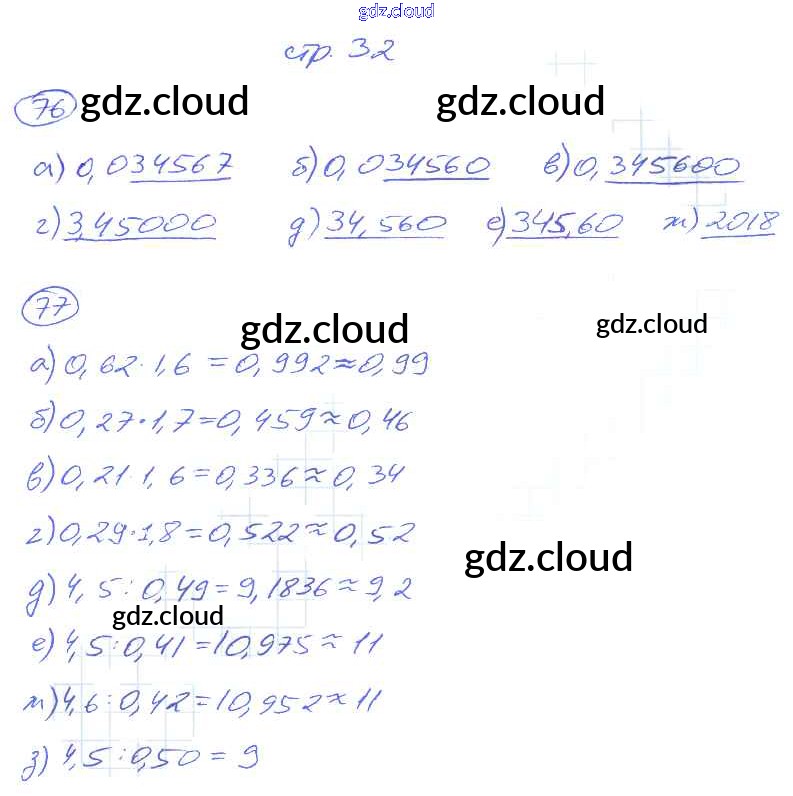 gdz.cloud
стр. 32
76 gdz.cloud gdz.cloud
а) 0,034567 б) 0,034560 в) 0,345600
г) 3,45000 д) 34,560 е) 345,60 ж) 2018
77
gdz.cloud gdz.cloud
а) 0,62·1,6=0,992≈0,99
б) 0,27·1,7=0,459≈0,46
в) 0,21·1,6=0,336≈0,34
г) 0,29·1,8=0,522≈0,52
gdz.cloud
д) 4,5:0,49=9,1836≈9,2
gdz.cloud
е) 4,5:0,41=10,975≈11
ж) 4,6:0,42=10,952≈11
з) 4,5:0,50=9